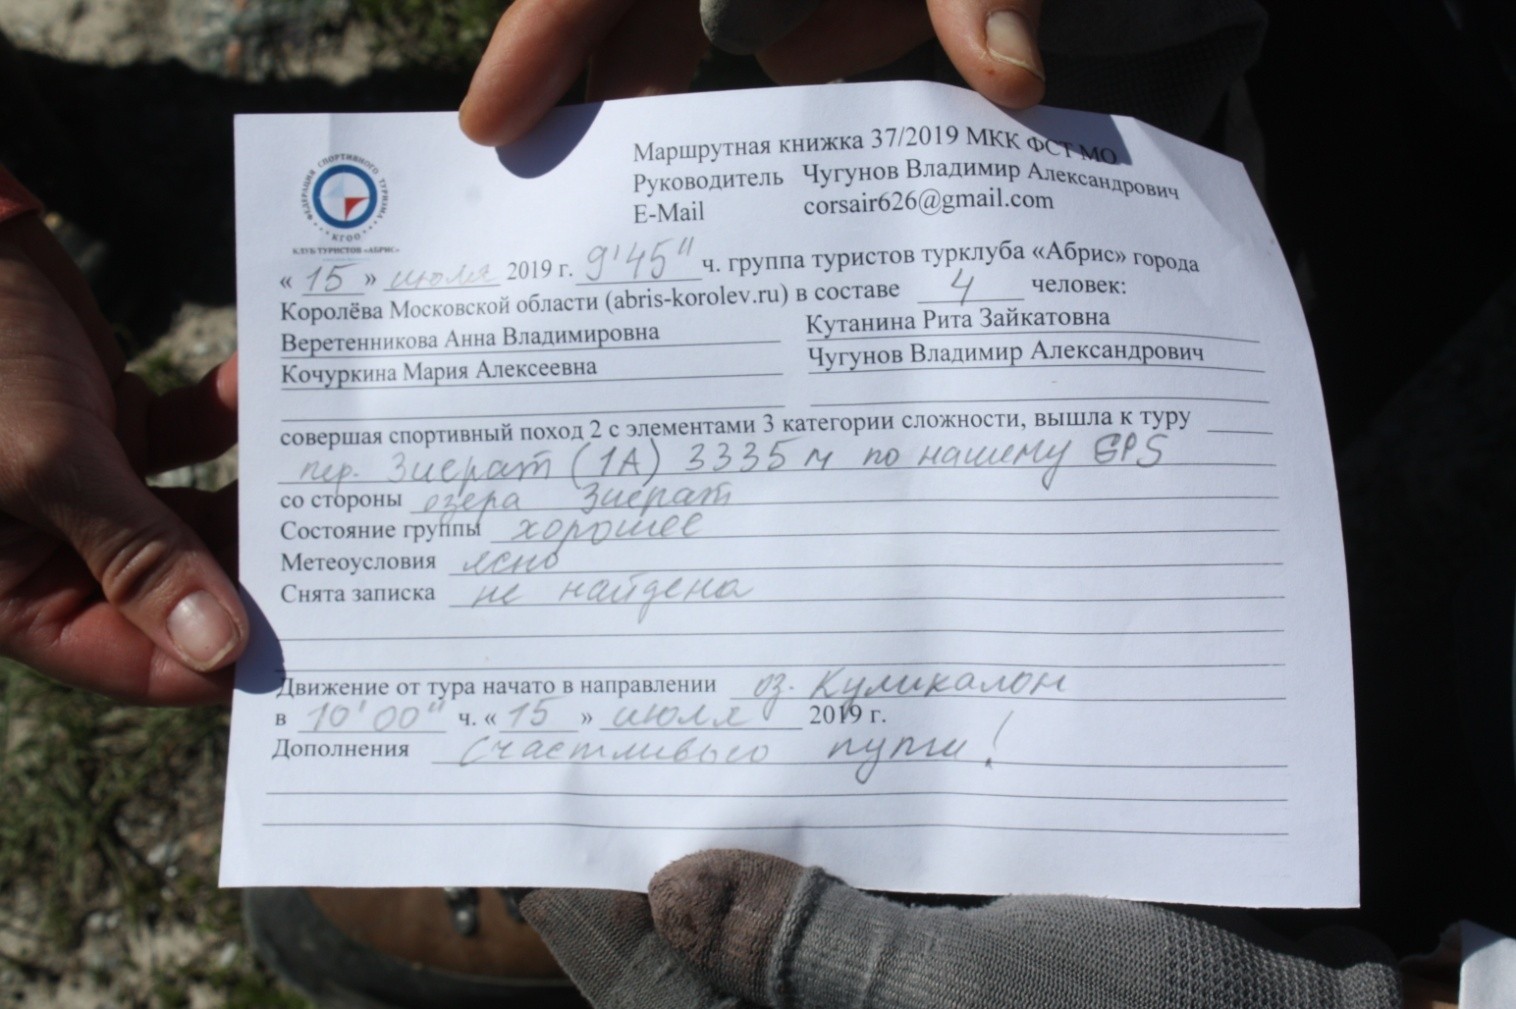 ФЕДЕРАЦИЯ СПОРТИВНОГО ТУРИЗМА
КГОО
КЛУБ ТУРИСТОВ «АБРИС»
Маршрутная книжка 37/2019 МКК ФСТ МО
Руководитель Чугунов Владимир Александрович
E-Mail corsair626@gmail.com
« 15 » июля 2019 г. 9'45" ч. группа туристов турклуба «Абрис» города
Королёва Московской области (abris-korolev.ru) в составе 4 человек:
Веретенникова Анна Владимировна Кутанина Рита Зайкатовна
Кочуркина Мария Алексеевна Чугунов Владимир Александрович
совершая спортивный поход 2 с элементами 3 категории сложности, вышла к туру
пер. Зиерат (1А) 3335 м по нашему GPS
со стороны озера Зиерат
Состояние группы хорошее
Метеоусловия ясно
Снята записка не найдена
Движение от тура начато в направлении оз. Куликалон
в 10'00" ч. « 15 » июля 2019 г.
Дополнения Счастливого пути!